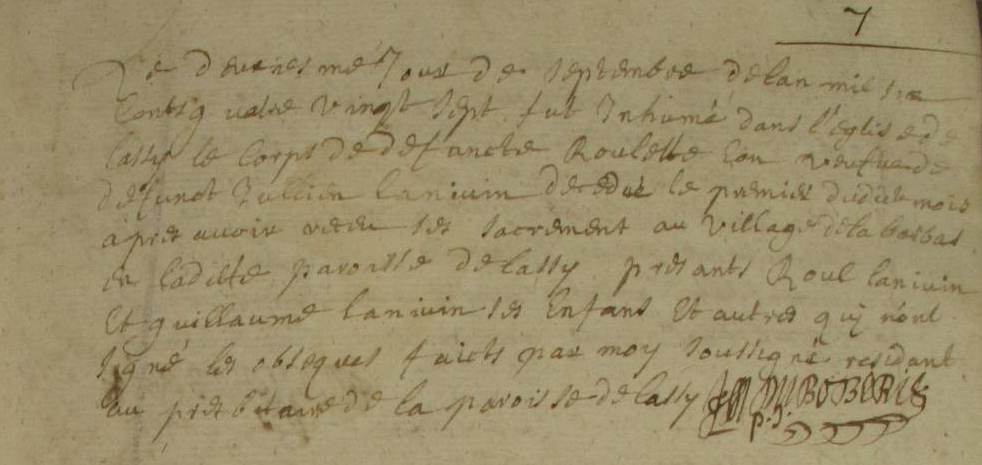 7
Le deuxiesme Jour de septembre de lan mil six
Cents quatre vingt sept fut Inhumé dans l'eglise de
lassy le Corps de defuncte Roulette Eon veufve de
defunct Jullien lanivin decedée le premier dudict mois
apres avoir receu ses sacrement au village de la bosbas
en ladicte paroisse de lassy presants Roul lanivin
Et guillaume lanivin ses Enfans Et autres quy n'ont
signé les obseques faicts par moy soussigné residant
au presbitaire de la paroisse de lassy